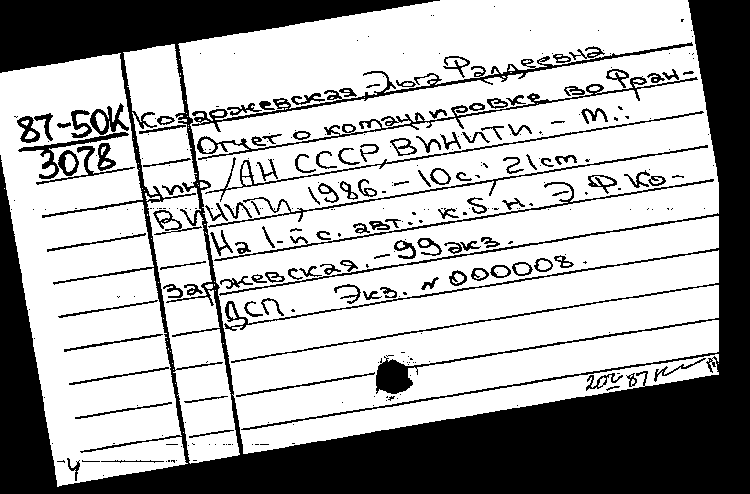 87-50К
3078
Козаржевская, Эльга Фаддеевна.
Отчет о командировке во Фран-
цию / АН СССР, ВИНИТИ. – М.:
ВИНИТИ, 1986. – 10 с.; 21 см.
На 1-й с. авт.: к.б.н. Э.Ф. Ко-
заржевская. – 99 экз.
ДСП. Экз. № 000008.
87
ч